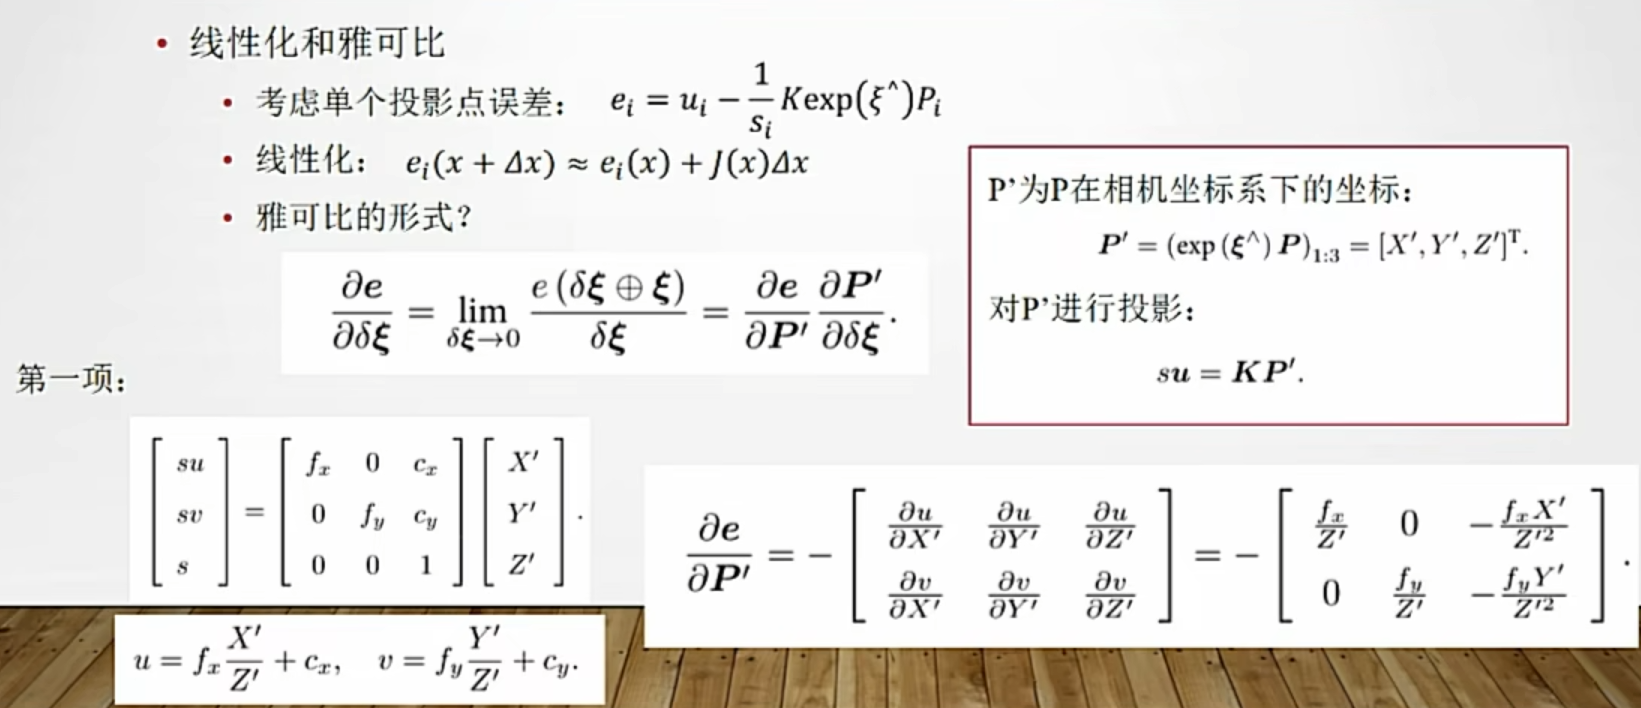 • 线性化和雅可比
• 考虑单个投影点误差： e_i = u_i − \frac{1}{s_i} K exp(ξ^) P_i
• 线性化： e_i(x + Δx) ≈ e_i(x) + J(x)Δx
• 雅可比的形式？
\frac{∂e}{∂δξ} = \lim_{δξ→0} \frac{e(δξ ⊕ ξ)}{δξ} = \frac{∂e}{∂P'} \frac{∂P'}{∂δξ}.
P’为P在相机坐标系下的坐标：
P' = (exp(ξ^) P)_{1:3} = [X', Y', Z']^T.
对P’进行投影：
su = KP'.
第一项：
\begin{bmatrix} su \\ sv \\ s \end{bmatrix} = \begin{bmatrix} f_x & 0 & c_x \\ 0 & f_y & c_y \\ 0 & 0 & 1 \end{bmatrix} \begin{bmatrix} X' \\ Y' \\ Z' \end{bmatrix}.
u = f_x \frac{X'}{Z'} + c_x, v = f_y \frac{Y'}{Z'} + c_y.
\frac{∂e}{∂P'} = − \begin{bmatrix} \frac{∂u}{∂X'} & \frac{∂u}{∂Y'} & \frac{∂u}{∂Z'} \\ \frac{∂v}{∂X'} & \frac{∂v}{∂Y'} & \frac{∂v}{∂Z'} \end{bmatrix} = − \begin{bmatrix} \frac{f_x}{Z'} & 0 & −\frac{f_x X'}{Z'^2} \\ 0 & \frac{f_y}{Z'} & −\frac{f_y Y'}{Z'^2} \end{bmatrix}.